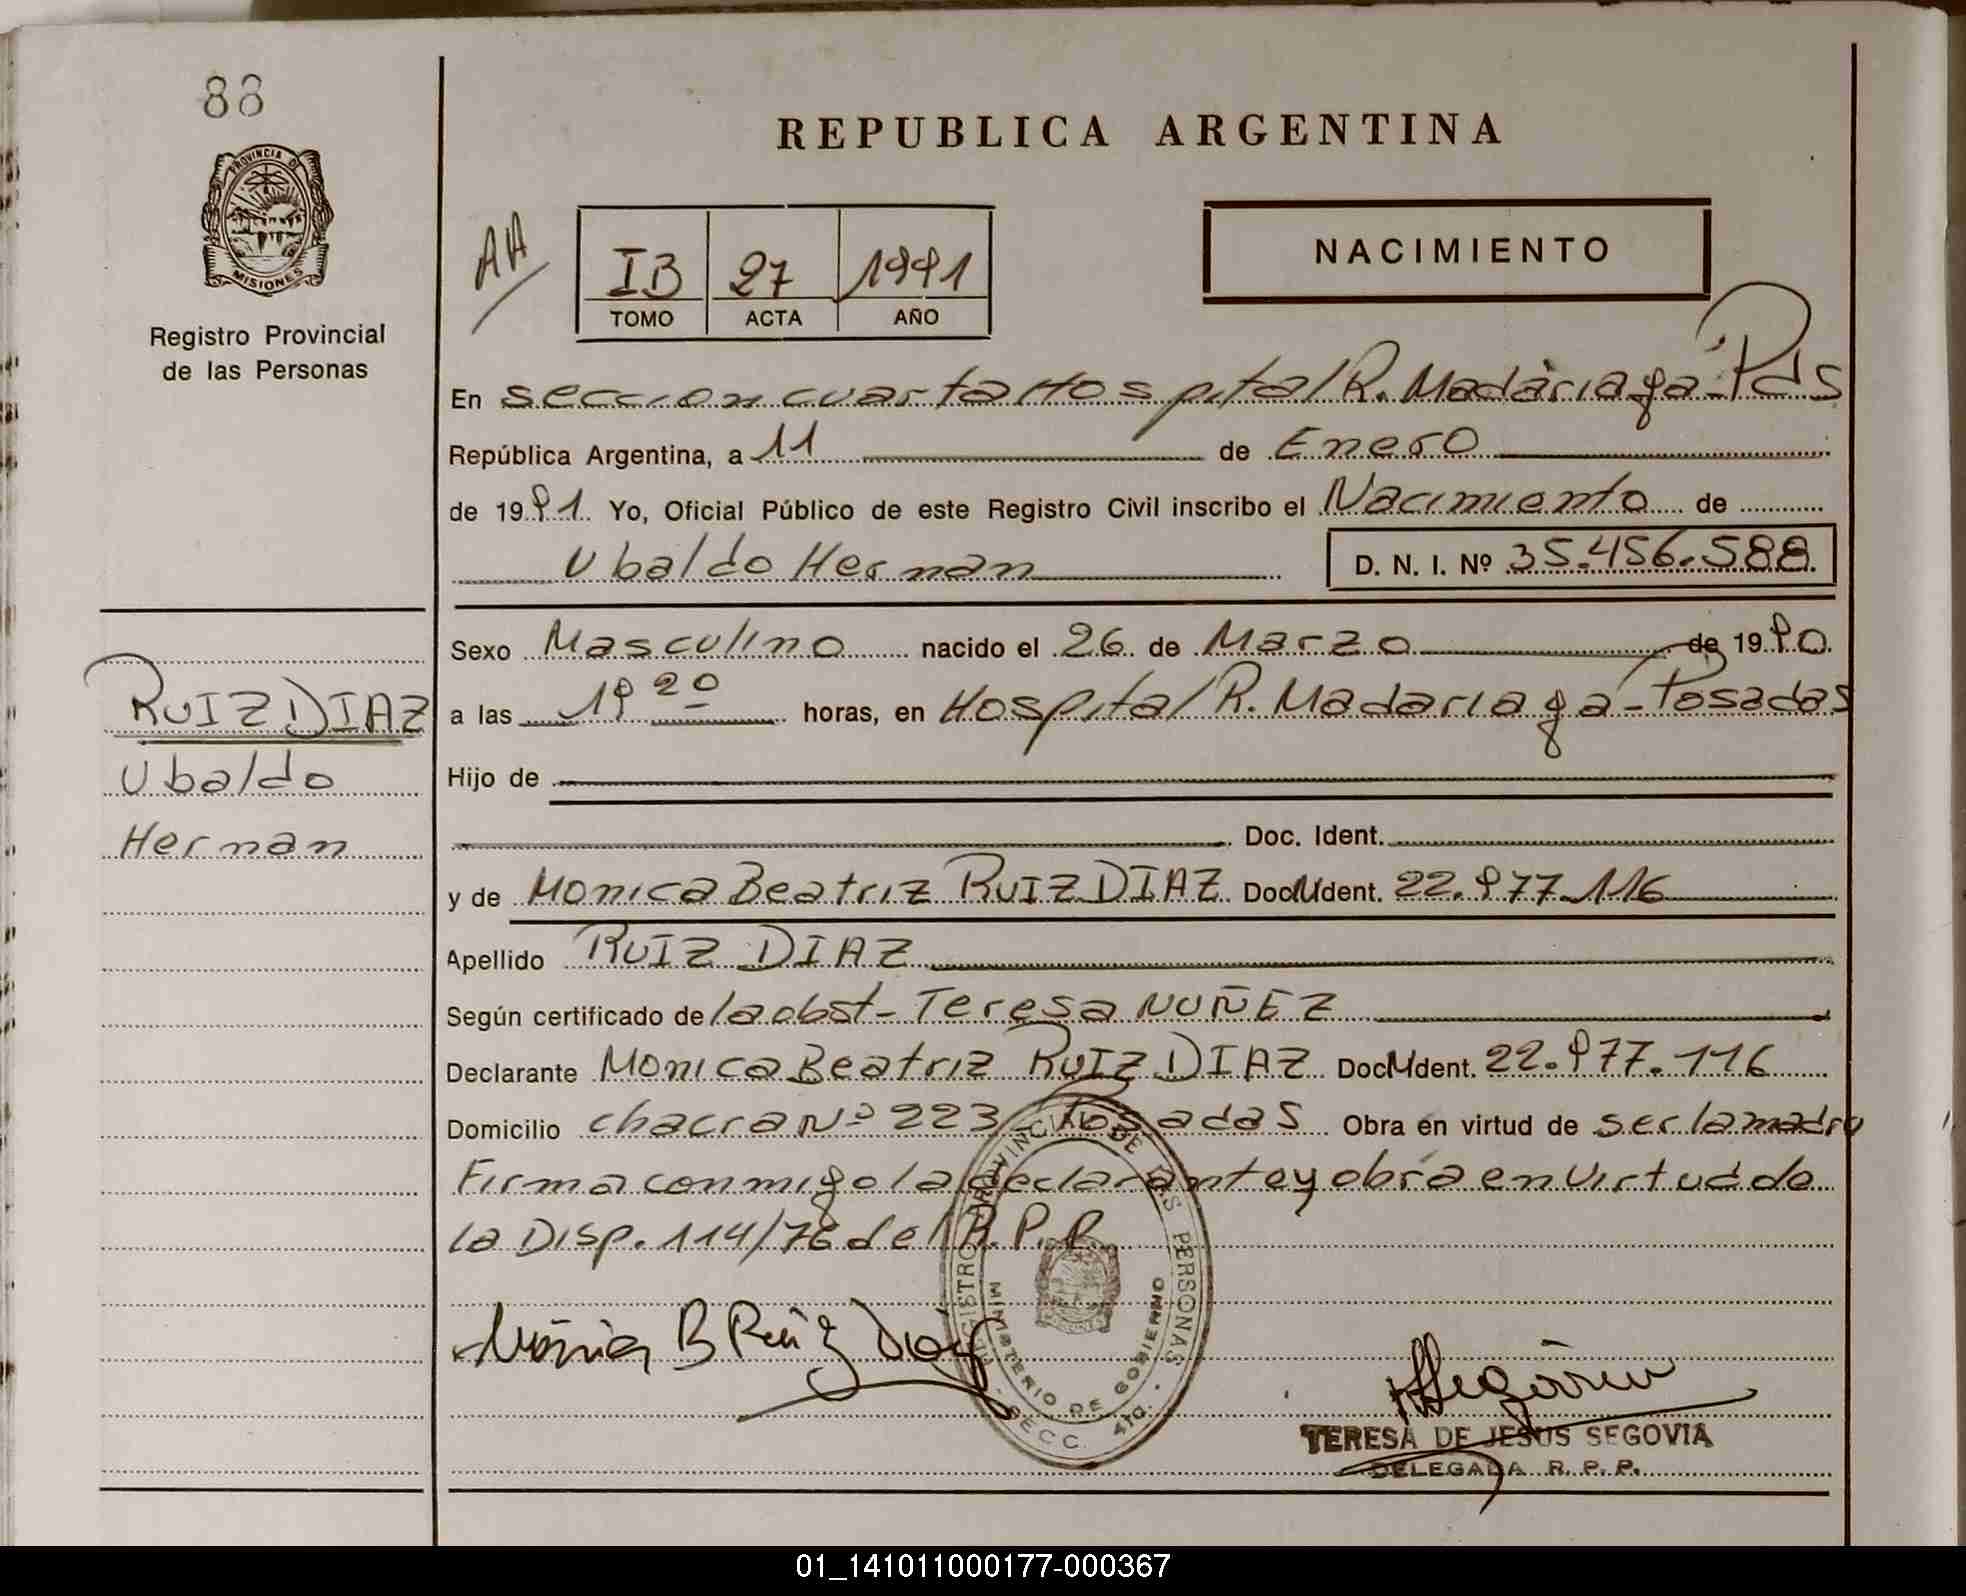 88
REPUBLICA ARGENTINA
PROVINCIA DE
MISIONES
Registro Provincial
de las Personas
AA
IB 27 1991
TOMO ACTA AÑO
NACIMIENTO
En seccion cuarta Hospital R. Madariaga - Pds
República Argentina, a 11 de Enero
de 1991. Yo, Oficial Público de este Registro Civil inscribo el Nacimiento de
Ubaldo Hernan D. N. I. Nº 35.456.588
Sexo Masculino nacido el 26 de Marzo de 1990.
a las 19 20 horas, en Hospital R. Madariaga - Posadas
Hijo de
Doc. Ident.
y de Monica Beatriz RUIZ DIAZ Doc. Ident. 22.977.116
Apellido RUIZ DIAZ
Según certificado de la obst- Teresa NUÑEZ
Declarante Monica Beatriz RUIZ DIAZ Doc. Ident. 22.977.116
Domicilio chacra Nº 223 - Posadas Obra en virtud de ser la madre
Firma conmigo la declarante y obra en virtud de
la Disp. 114/76 del R.P.P.
RUIZ DIAZ
Ubaldo
Hernan
Mónica B Ruiz Diaz
REGISTRO PROVINCIAL DE LAS PERSONAS
MINISTERIO DE GOBIERNO
SECC. 4ta.
TERESA DE JESUS SEGOVIA
DELEGADA R. P. P.
01_141011000177-000367